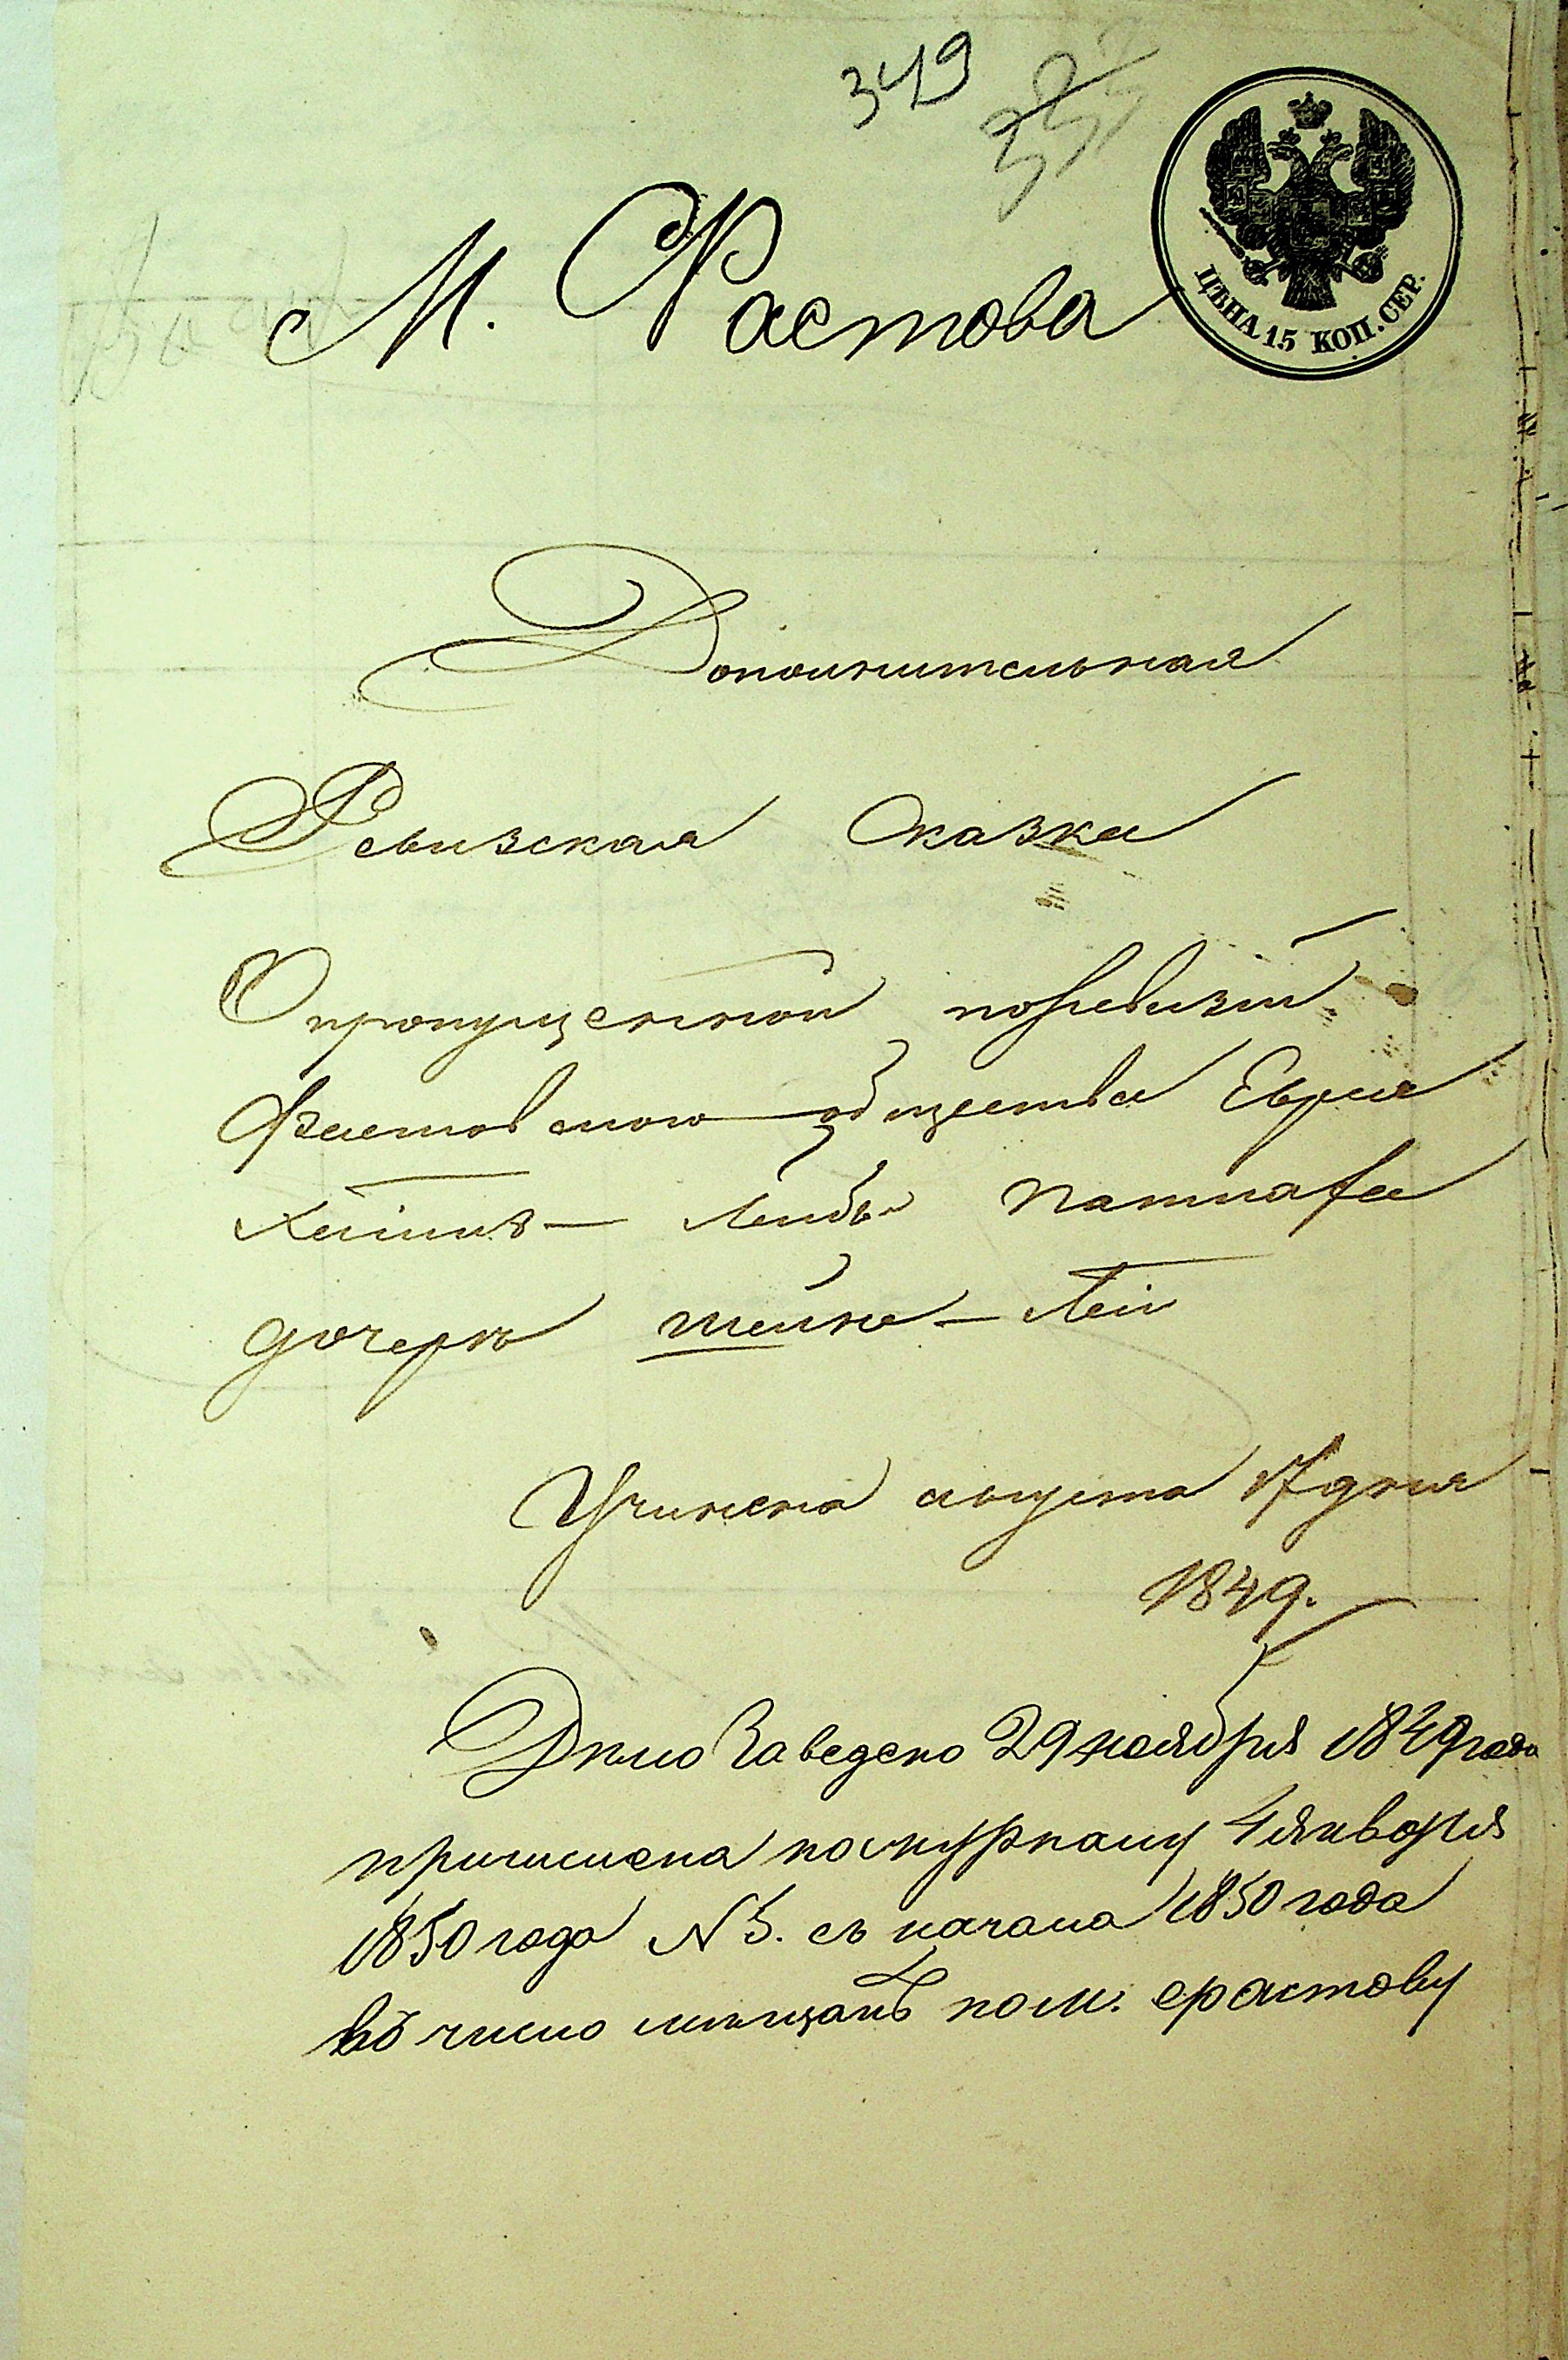 349
ЦѢНА 15 КОП. СЕР.
М. Фастова
Дополнительная
Ревизская Сказка
О пропущенной поревизіи
Фастовского общества Еврея
Хаима — Лейбы
дочери Шейне — Леи
Учинена августа 17 дня
1849.
Дѣло Заведено 29 ноября 1849 года
причислена по журналу 4 января
1850 года N 5. съ начала 1850 года
въ число мѣщанъ по м. Фастову